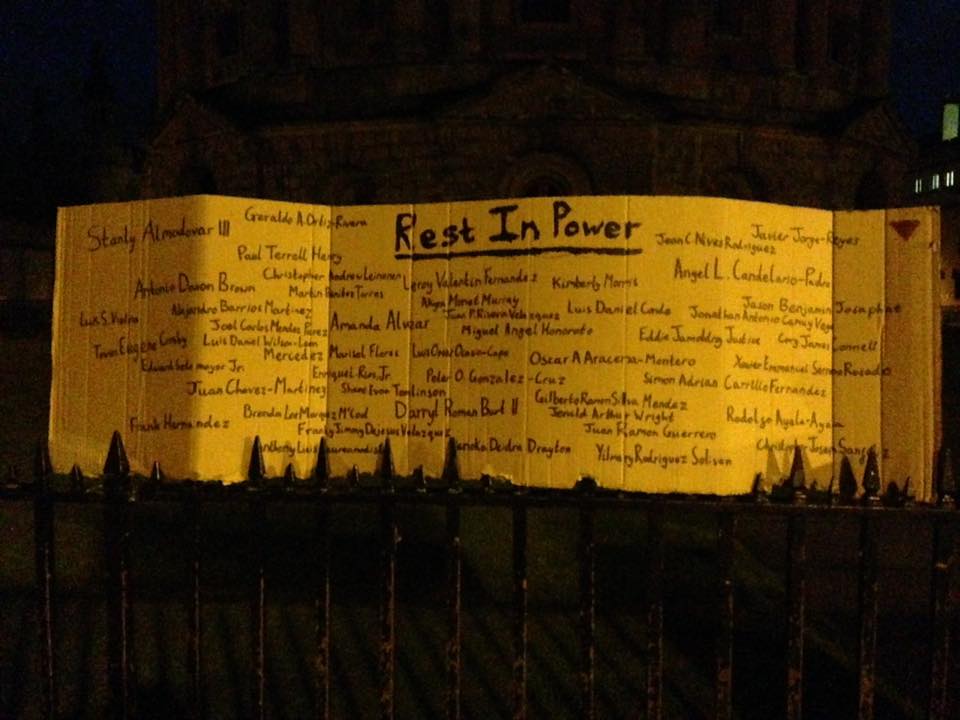 Rest In Power
Stanly Almodovar III
Geraldo A. Ortiz-Rivera
Paul Terrell Henry
Antonio Davon Brown
Christopher Andrew Leinonen
Martin Benitez Torres
Alejandro Barrios Martinez
Luis S. Vielma
Joel Carlos Mendez Perez
Luis Daniel Wilson-Leon
Eugene Cosby
Mercedez Marisol Flores
Eduardo Sotomayor Jr.
Enrique L. Rios, Jr.
Juan Chavez-Martinez
Shane Evan Tomlinson
Brenda Lee Marquez McCool
Frank Hernandez
Franky Jimmy Dejesus Velazquez
Anthony Luis
Leroy Valentin Fernandez
Akyra Monet Murray
Jean P. Rivera Velazquez
Amanda Alvear
Miguel Angel Honorato
Luis Omar Ocasio-Capo
Peter O. Gonzalez-Cruz
Darryl Roman Burt II
Deidra Drayton
Kimberly Morris
Luis Daniel Conde
Oscar A Aracena-Montero
Gilberto Ramon Silva Menendez
Jerald Arthur Wright
Juan Ramon Guerrero
Yilmary Rodriguez Solivan
Jean C Nives Rodriguez
Javier Jorge-Reyes
Angel L. Candelario-Padro
Jason Benjamin Josaphat
Jonathan Antonio Camuy Vega
Eddie Jamoldroy Justice
Cory James Connell
Xavier Emmanuel Serrano Rosado
Simon Adrian Carrillo Fernandez
Rodolfo Ayala-Ayala
Joseph